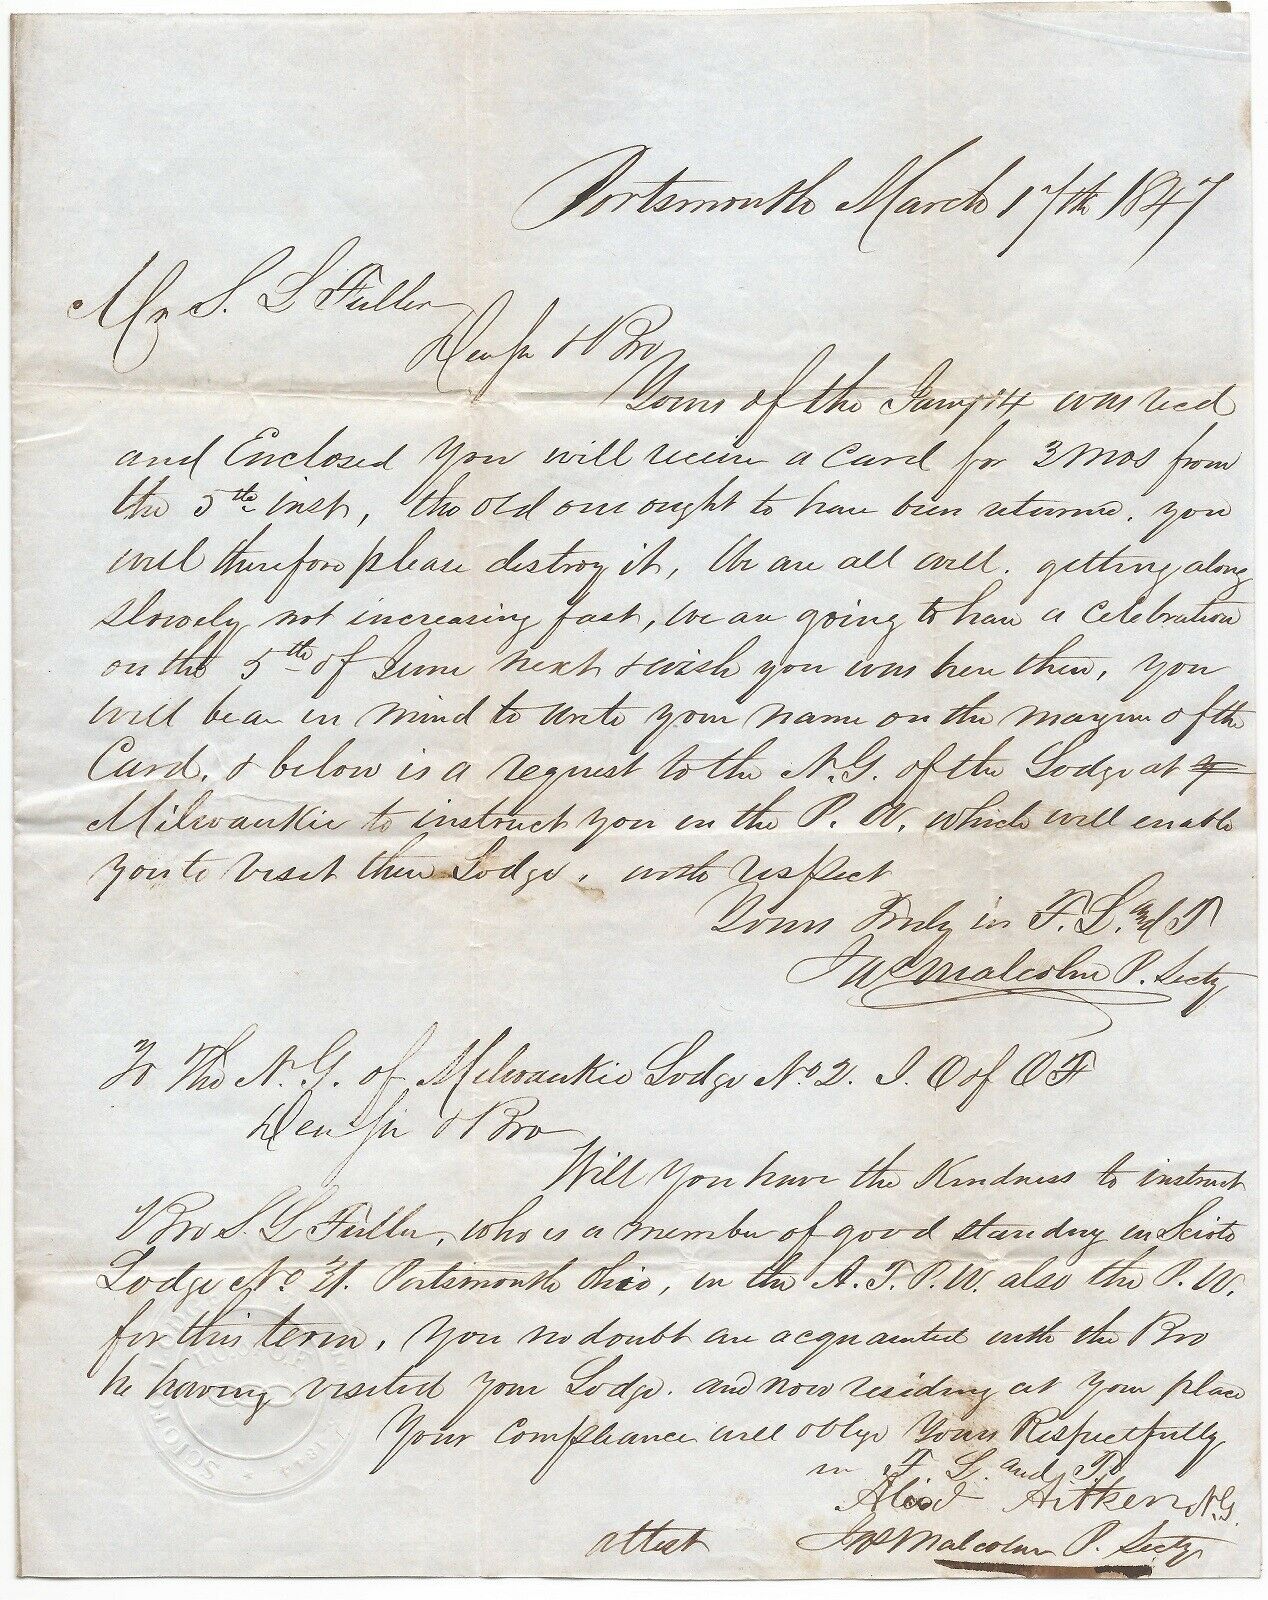 Portsmouth March 17th 1847
Mr S. L Fuller
Dear Sir & Bro
Yours of the Jany 14 was recd
and Enclosed you will receive a Card for 3 mos from
the 5th inst, the old one ought to have been returned. you
will therefore please destroy it, We are all well. getting along
slowly not increasing fast, we are going to have a celebration
on the 5th of June next & wish you was here then, you
will bear in mind to write your name on the margin of the
Card. & below is a request to the N.G. of the Lodge at
Milwaukie to instruct you in the P. W. which will enable
you to visit their Lodge. with respect
Yours Truly in F. L. and T
Jas Malcolm P. Secty
To The N. G. of Milwaukie Lodge No 2. I. O of O F
Dear Sir & Bro
Will you have the Kindness to instruct
Bro S. L Fuller, who is a member of good standing in Scioto
Lodge No 31. Portsmouth Ohio, in the A. T. P. W. also the P. W.
for this term, You no doubt are acquainted with the Bro
he having visited your Lodge. and now residing at your place
Your Compliance will oblige Yours Respectfully
in F L. and T.
Alexd Aitken N.G.
attest Jas Malcolm P. Secty
SCIOTO LODGE